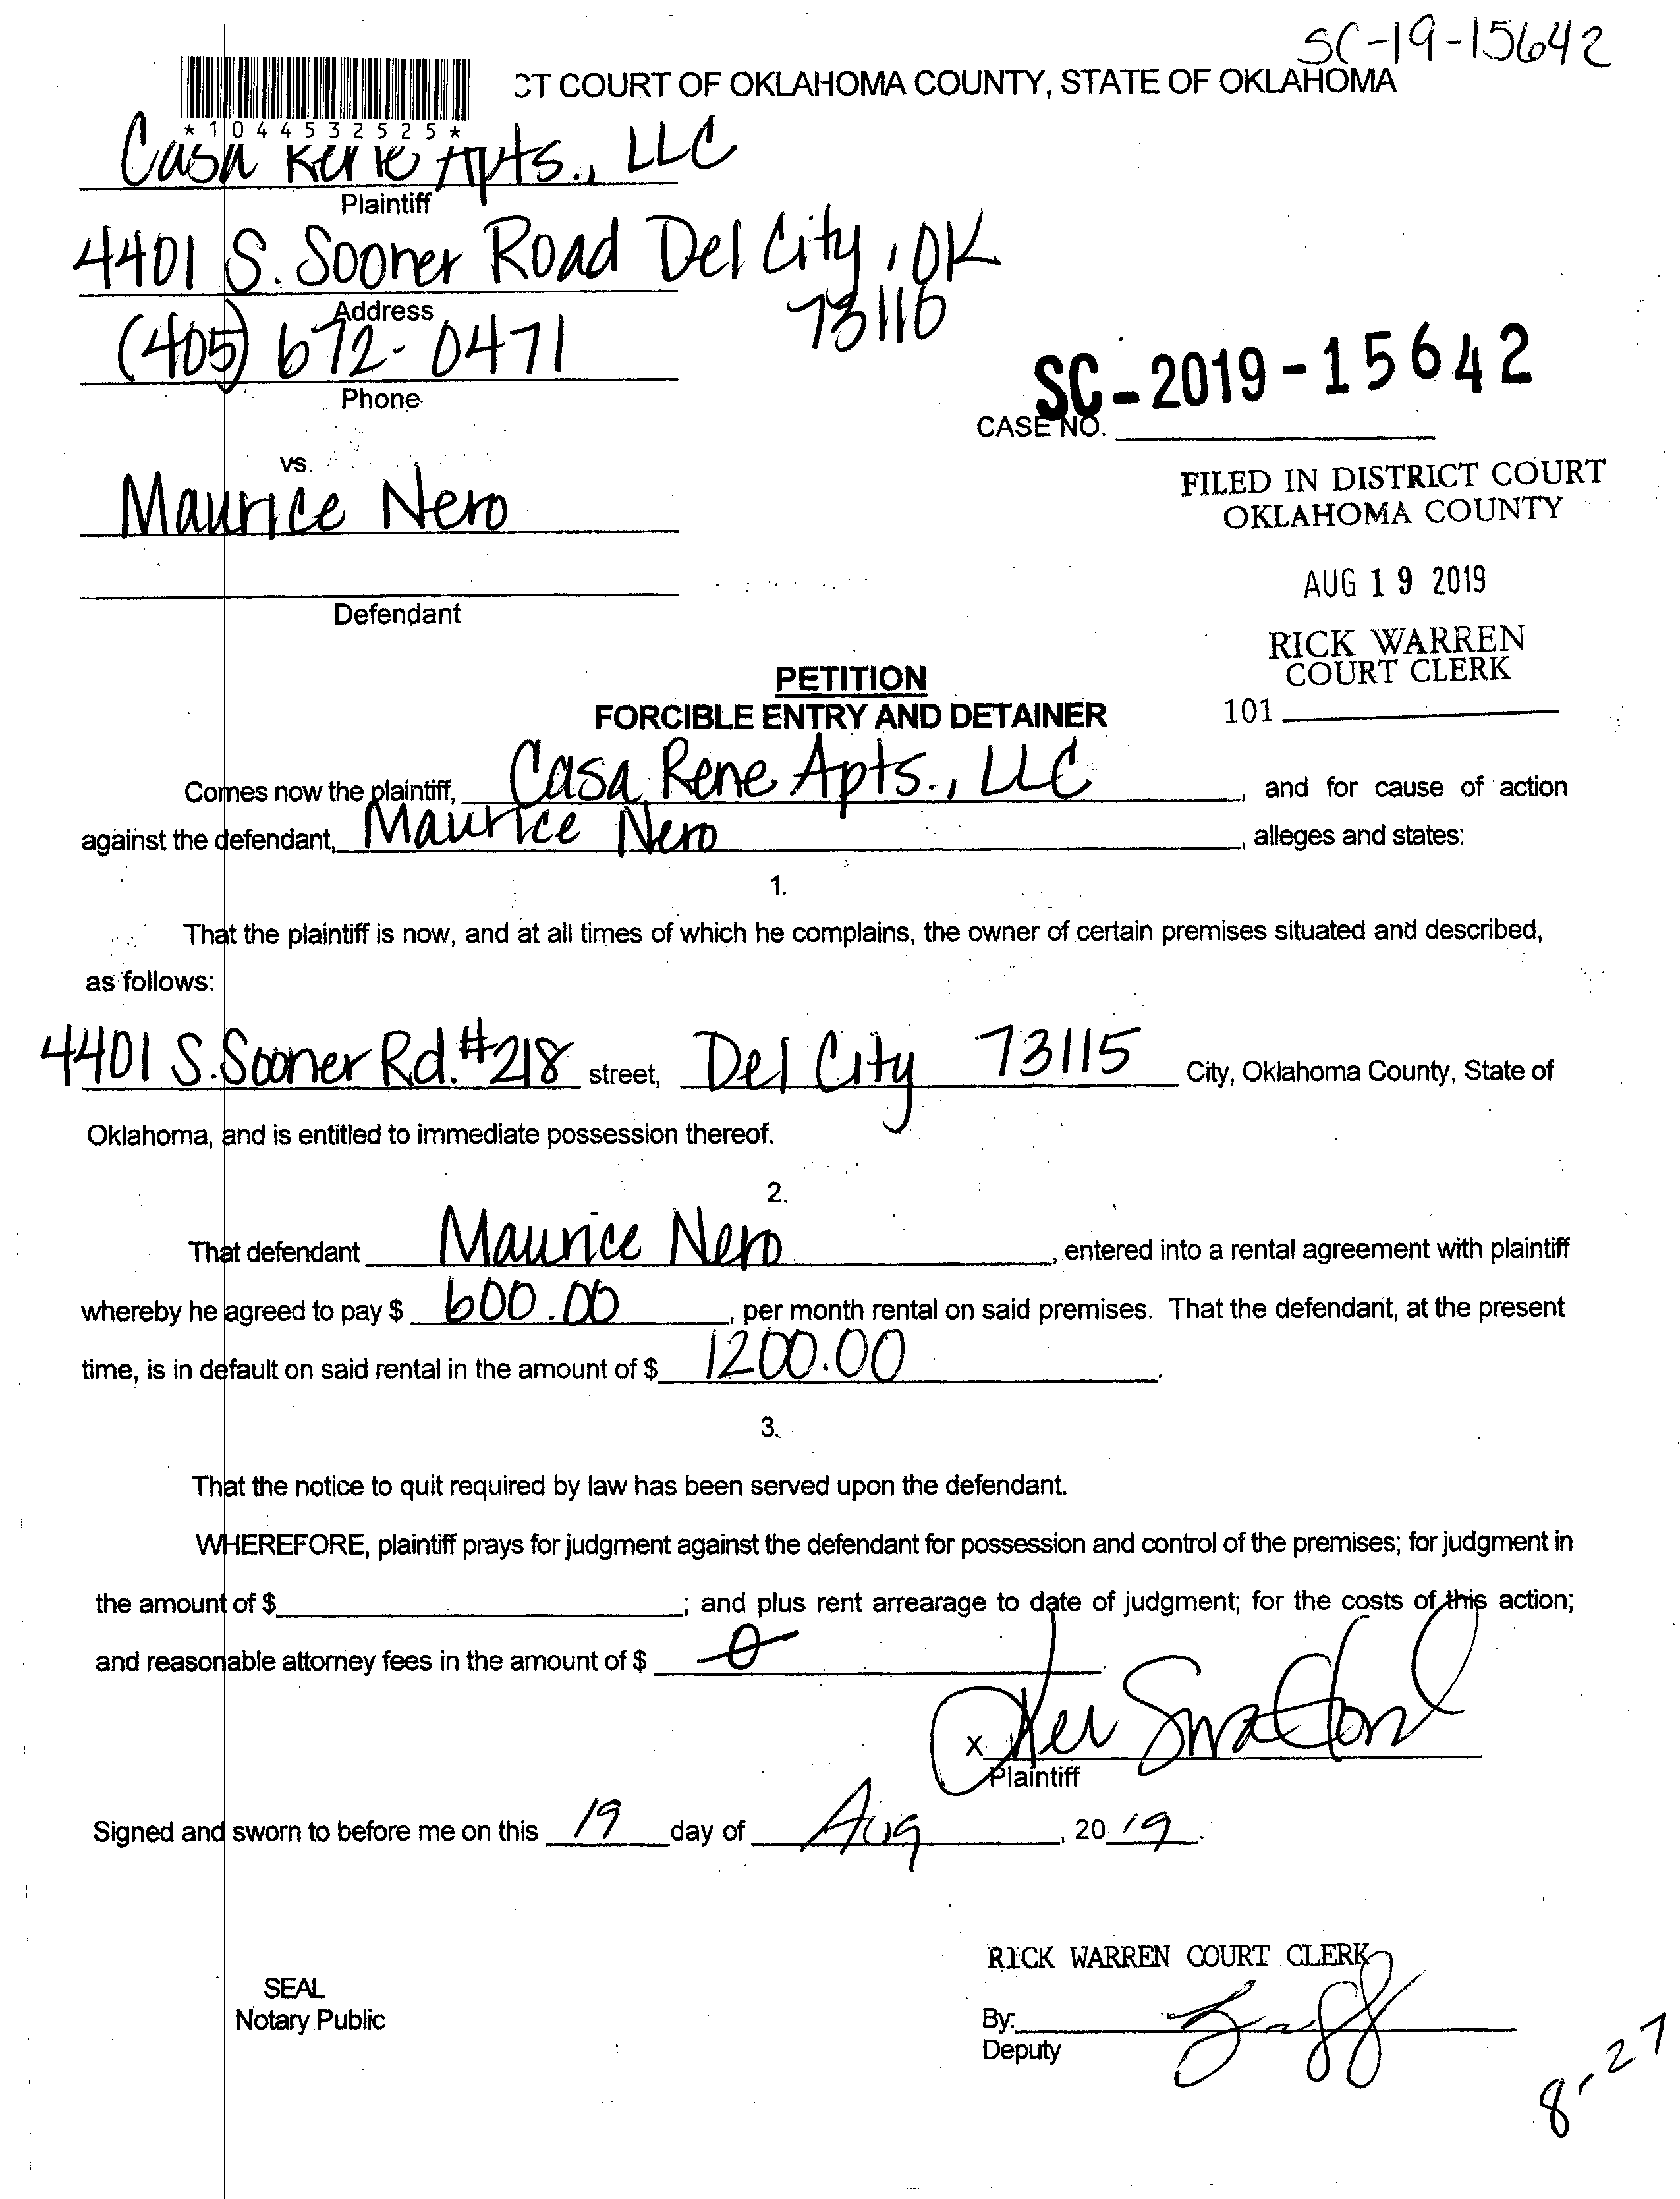 SC-19-15642
CT COURT OF OKLAHOMA COUNTY, STATE OF OKLAHOMA
*1044532525*
Casa Rene Apts., LLC
Plaintiff
4401 S. Sooner Road Del City, OK
73115
Address
(405) 672-0471
Phone
SC-2019-15642
CASE NO.
vs.
Maurice Nero
Defendant
FILED IN DISTRICT COURT
OKLAHOMA COUNTY
AUG 19 2019
RICK WARREN
COURT CLERK
101
PETITION
FORCIBLE ENTRY AND DETAINER
Comes now the plaintiff, Casa Rene Apts., LLC, and for cause of action
against the defendant, Maurice Nero, alleges and states:
1.
That the plaintiff is now, and at all times of which he complains, the owner of certain premises situated and described,
as follows:
4401 S. Sooner Rd. #218 street, Del City 73115 City, Oklahoma County, State of
Oklahoma, and is entitled to immediate possession thereof.
2.
That defendant Maurice Nero, entered into a rental agreement with plaintiff
whereby he agreed to pay $ 600.00, per month rental on said premises. That the defendant, at the present
time, is in default on said rental in the amount of $ 1200.00.
3.
That the notice to quit required by law has been served upon the defendant.
WHEREFORE, plaintiff prays for judgment against the defendant for possession and control of the premises; for judgment in
the amount of $; and plus rent arrearage to date of judgment; for the costs of this action;
and reasonable attorney fees in the amount of $ 0.
x
Plaintiff
Signed and sworn to before me on this 19 day of Aug, 2019.
RICK WARREN COURT CLERK
SEAL
Notary Public
By:
Deputy
8-27